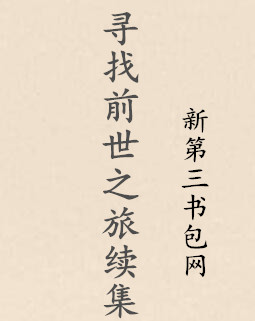 寻找前世之旅续集
新第三书包网